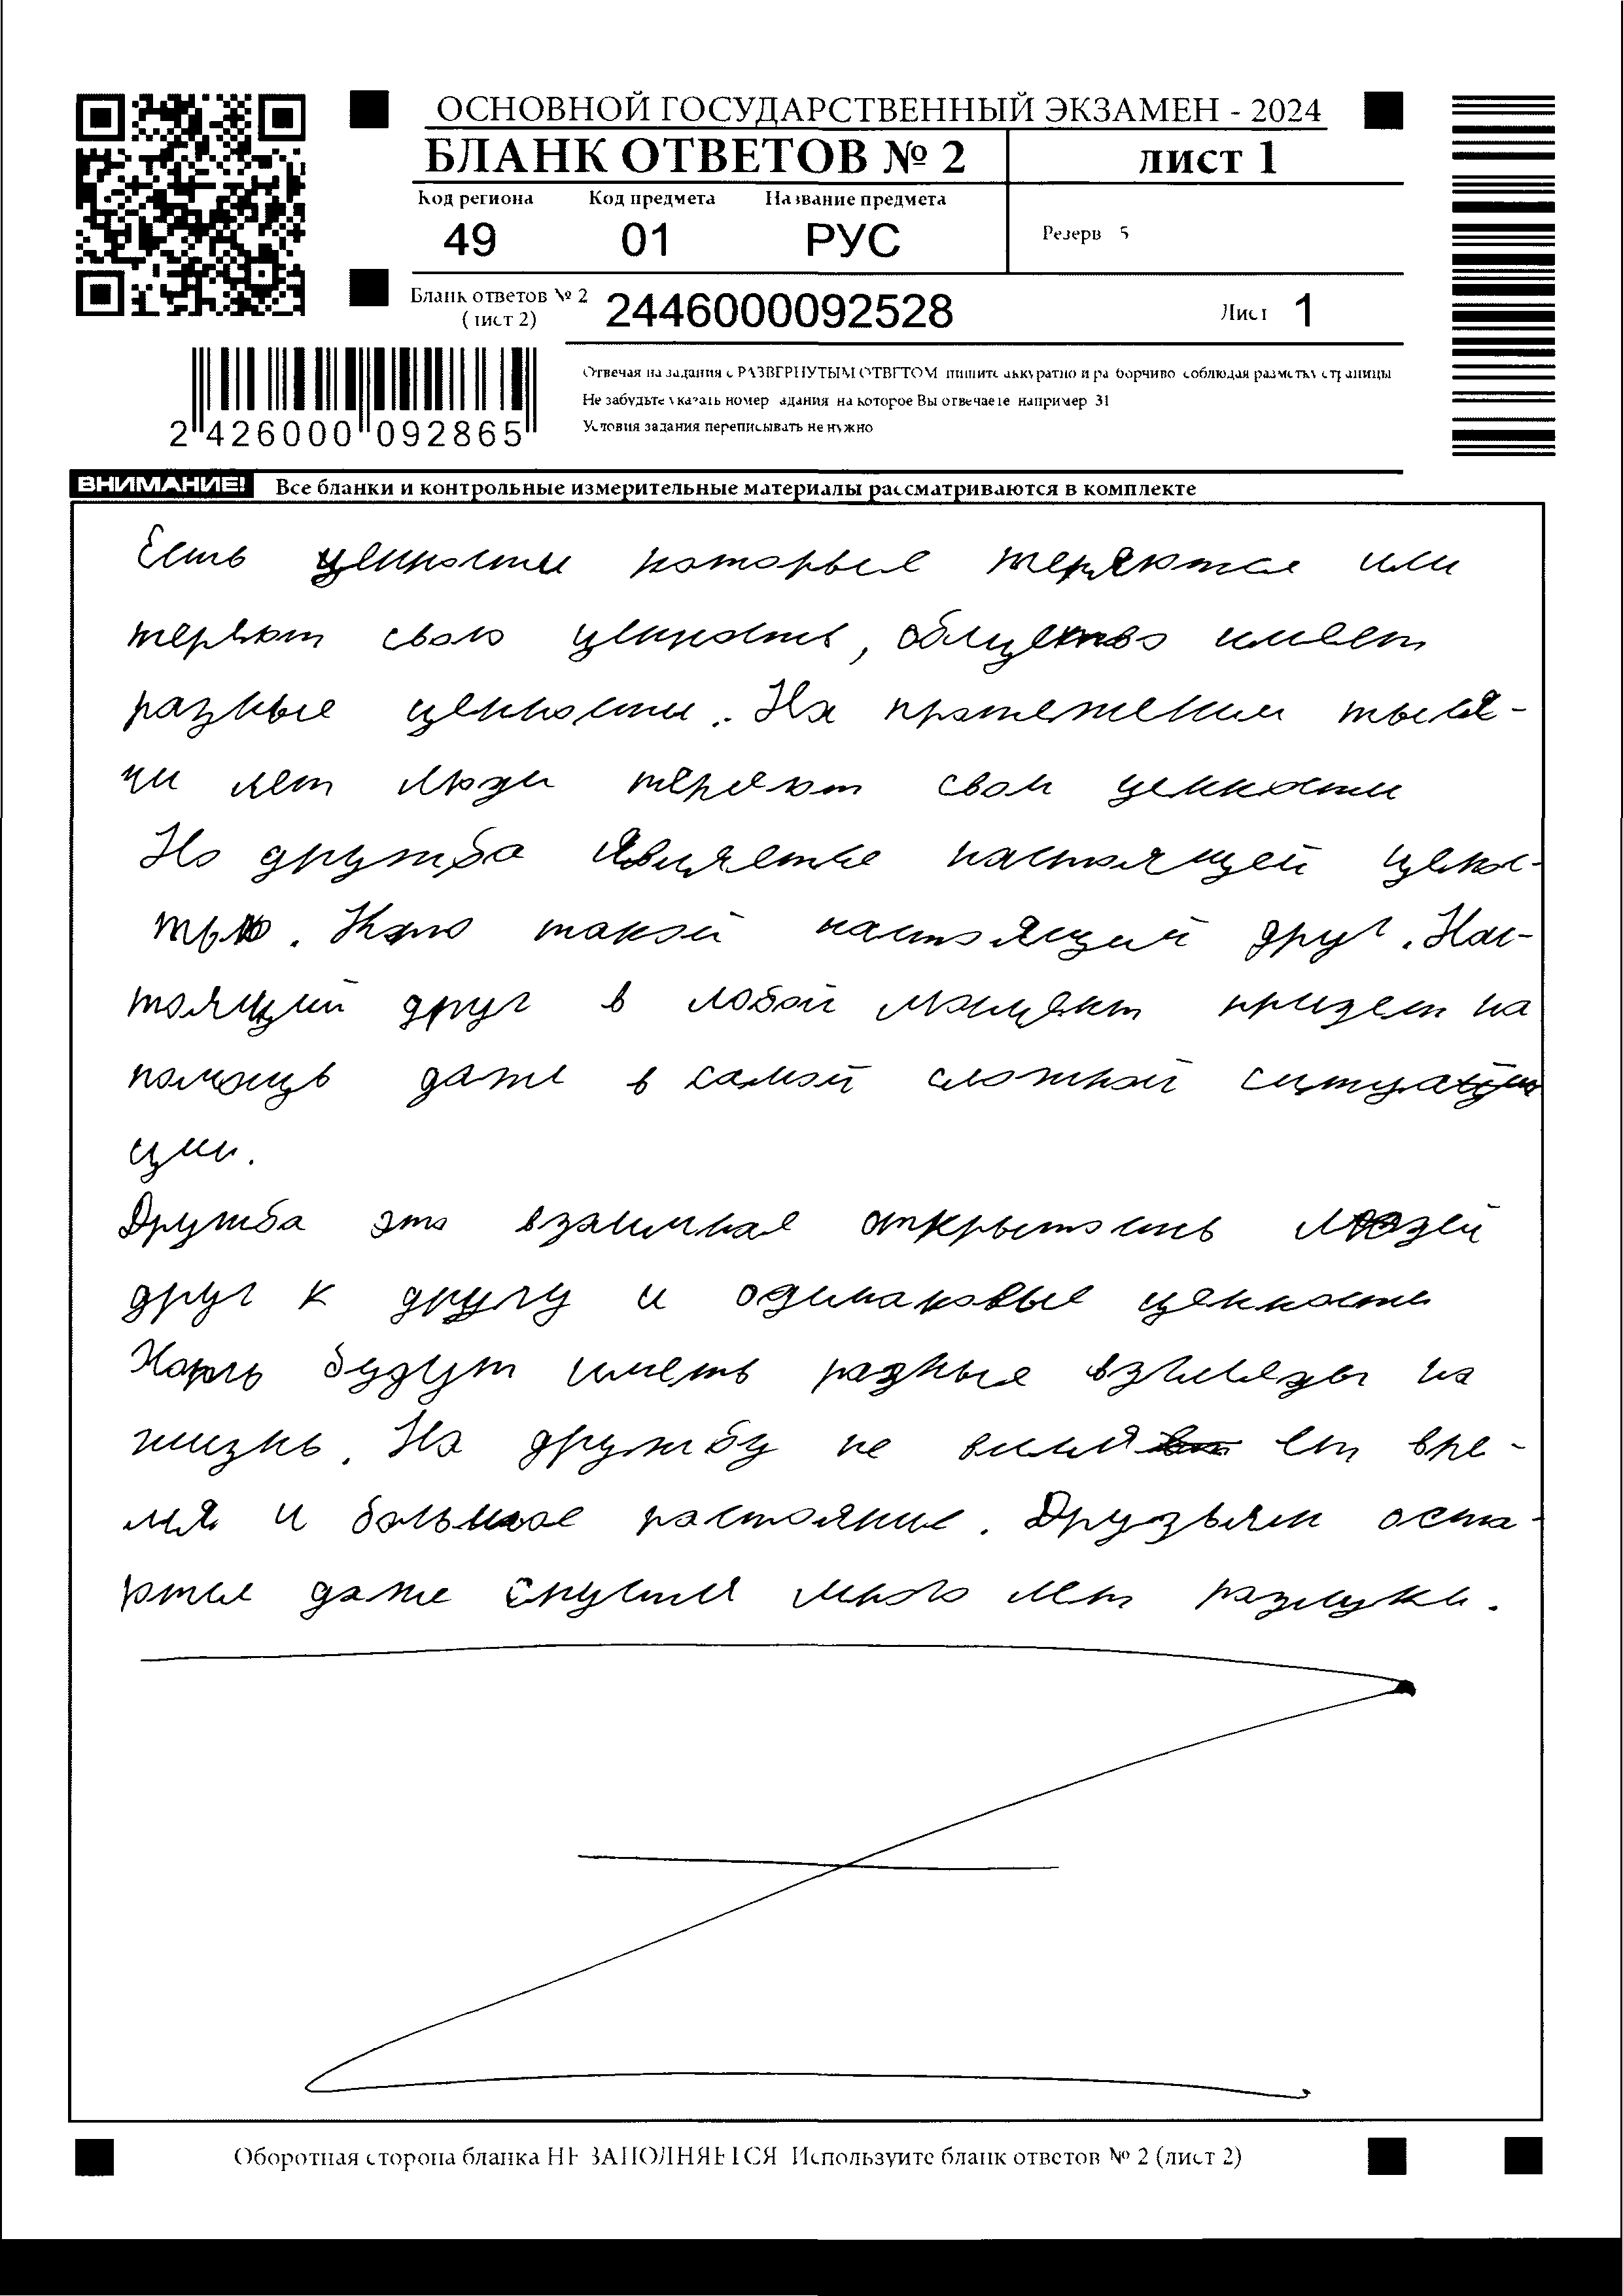 ОСНОВНОЙ ГОСУДАРСТВЕННЫЙ ЭКЗАМЕН - 2024
БЛАНК ОТВЕТОВ № 2
ЛИСТ 1
Код региона Код предмета Название предмета
49 01 РУС
Резерв 5
Бланк ответов № 2
(лист 2)
2446000092528
Лист 1
2 426000 092865
Отвечая на задания с РАЗВЕРНУТЫМ ОТВЕТОМ пишите аккуратно и разборчиво соблюдая разметку страницы
Не забудьте указать номер задания на которое Вы отвечаете например 31
Условия задания переписывать не нужно
ВНИМАНИЕ! Все бланки и контрольные измерительные материалы рассматриваются в комплекте
Есть ценности которые теряются или
теряют свою ценность, общество имеет
разные ценности. На протежении тыся-
чи лет люди теряют свои ценности
Но дружба является настоящей ценос-
тью. Кто такой настоящий друг. Нас-
тоящий друг в любой момент придет на
помощь даже в самой сложной ситуа
ции.
Дружба это взаимная открытость людей
друг к другу и одинаковые ценности
Хоть будут иметь разные взгляды на
жизнь. На дружбу не влияет вре-
мя и большое растояние. Друзьями оста-
ются даже спустя много лет разлуки.
Оборотная сторона бланка НЕ ЗАПОЛНЯЕТСЯ Используйте бланк ответов № 2 (лист 2)